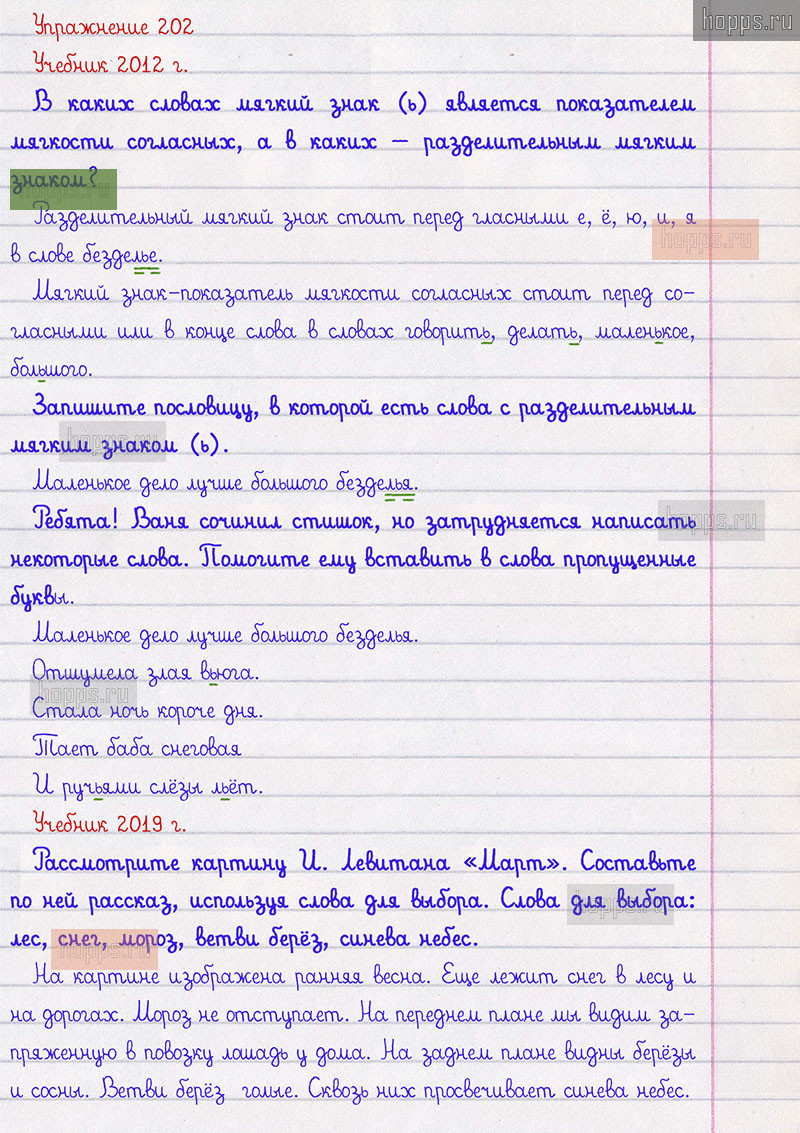 hopps.ru
Упражнение 202
Учебник 2012 г.
В каких словах мягкий знак (ь) является показателем
мягкости согласных, а в каких – разделительным мягким
знаком?
hopps.ru
Разделительный мягкий знак стоит перед гласными е, ё, ю, и, я
hopps.ru
в слове безделье.
Мягкий знак-показатель мягкости согласных стоит перед со-
гласными или в конце слова в словах говорить, делать, маленькое,
большого.
Запишите пословицу, в которой есть слова с разделительным
мягким знаком (ь).
hopps.ru
Маленькое дело лучше большого безделья.
Ребята! Ваня сочинил стишок, но затрудняется написать
hopps.ru
некоторые слова. Помогите ему вставить в слова пропущенные
буквы.
Маленькое дело лучше большого безделья.
Отшумела злая вьюга.
hopps.ru
Стала ночь короче дня.
Тает баба снеговая
И ручьями слёзы льёт.
Учебник 2019 г.
Рассмотрите картину И. Левитана «Март». Составьте
по ней рассказ, используя слова для выбора. Слова для выбора:
hopps.ru
лес, снег, мороз, ветви берёз, синева небес.
hopps.ru
На картине изображена ранняя весна. Еще лежит снег в лесу и
на дорогах. Мороз не отступает. На переднем плане мы видим за-
пряженную в повозку лошадь у дома. На заднем плане видны берёзы
и сосны. Ветви берёз голые. Сквозь них просвечивает синева небес.